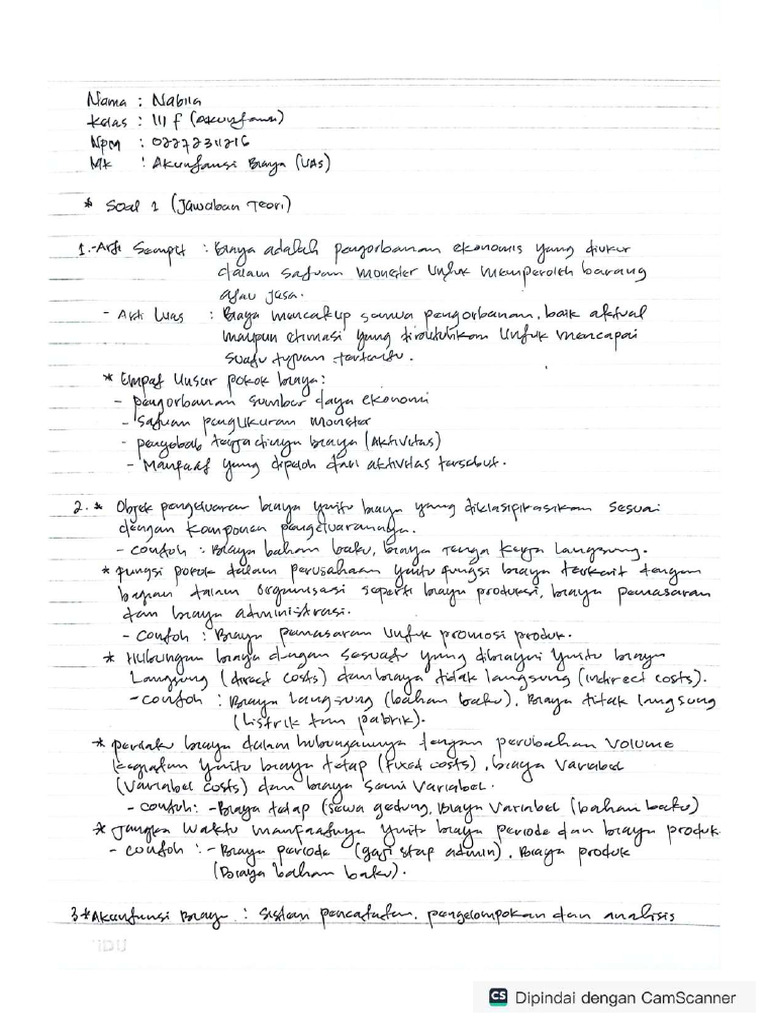 Nama : Nabila
Kelas : III F (Akuntansi)
Npm : 0227231126
Mk : Akuntansi Biaya (UAS)
* Soal 1 (Jawaban Teori)
1. - Arti Sempit : Biaya adalah pengorbanan ekonomis yang diukur
dalam satuan moneter untuk memperoleh barang
atau jasa.
- Arti Luas : Biaya mencakup semua pengorbanan, baik aktual
maupun etimasi yang dibutuhkan untuk mencapai
suatu tujuan tertentu.
* Empat Unsur pokok biaya :
- pengorbanan sumber daya ekonomi
- Satuan pengukuran moneter
- penyebab terjadinya biaya (Aktivitas)
- Manfaat yang dipeloh dari aktivitas tersebut.
2. * Objek pengeluaran biaya yaitu biaya yang diklasipikasikan sesuai
dengan komponen pengeluarannya.
- contoh : Biaya bahan baku, biaya Tenga kerja Langsung.
* fungsi pokok dalam perusahaan yaitu fungsi biaya terkait dengan
bagian dalam organisasi seperti biaya produksi, biaya pemasaran
dan biaya administrasi.
- contoh : Biaya pemasaran untuk promosi produk.
* Hubungan biaya dengan sesuatu yang dibiayai yaitu biaya
Langsung (direct costs) dan biaya tidak langsung (indirect costs).
- contoh : Biaya Langsung (bahan baku), Biaya titak langsung
(Listrik tan pabrik).
* perilaku biaya dalam hubungannya dengan perubahan volume
kegiatan yaitu biaya tetap (fixed costs), biaya Variabel
(Variabel costs) dan biaya Semi Variabel.
- contoh : - Biaya tetap (sewa gedung, Biaya Variabel (bahan baku)
* Jangka Waktu manfaatnya yaitu biaya periode dan biaya produk
- contoh : - Biaya periode (gaji stap admin), Biaya produk
(Biaya bahan baku).
3 * Akuntansi Biaya : Sistem pencatatan, pengelompokan dan analisis
CS Dipindai dengan CamScanner